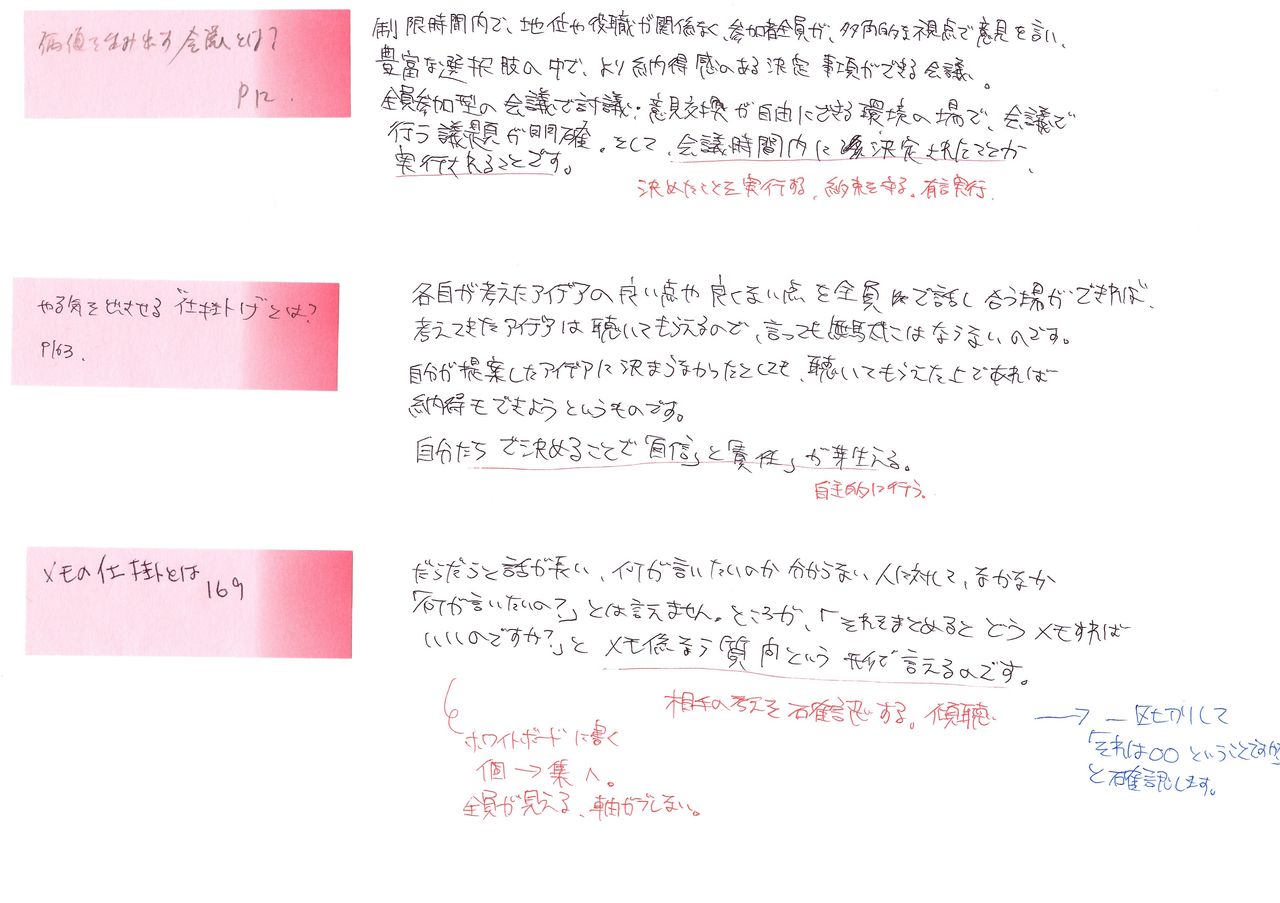 価値を生み出す会議とは?
P12.
制限時間内で、地位や役職が関係なく、参加者全員が、多角的な視点で意見を言い、
豊富な選択肢の中で、より納得感のある決定事項ができる会議。
全員参加型の会議で討議・意見交換が自由にできる環境の場で、会議で
行う議題が明確。そして、会議時間内に決定されたことが、
実行されることです。
決めたことを実行する、約束を守る。有言実行。
やる気を出させる"仕掛け"とは?
P163.
各自が考えたアイデアの良い点や良くない点を全員で話し合う場ができれば、
考えてきたアイデアは聴いてもらえるので、言っても無駄にはならないのです。
自分が提案したアイデアに決まらなかったとしても、聴いてもらえた上であれば
納得もできようというものです。
自分たちで決めることで「自信」と「責任」が芽生える。
自主的に行う。
メモの仕掛とは
169
だらだらと話が長い、何が言いたいのか分からない人に対して、なかなか
「何が言いたいの?」とは言えません。ところが、「それをまとめるとどうメモすれば
いいのですか?」とメモ係なら質問という形で言えるのです。
相手の考えを確認する。傾聴。
→ 一区切りして
「それは○○ということですか」
と確認します。
ホワイトボードに書く
個→集へ。
全員が見える、軸がブレない。